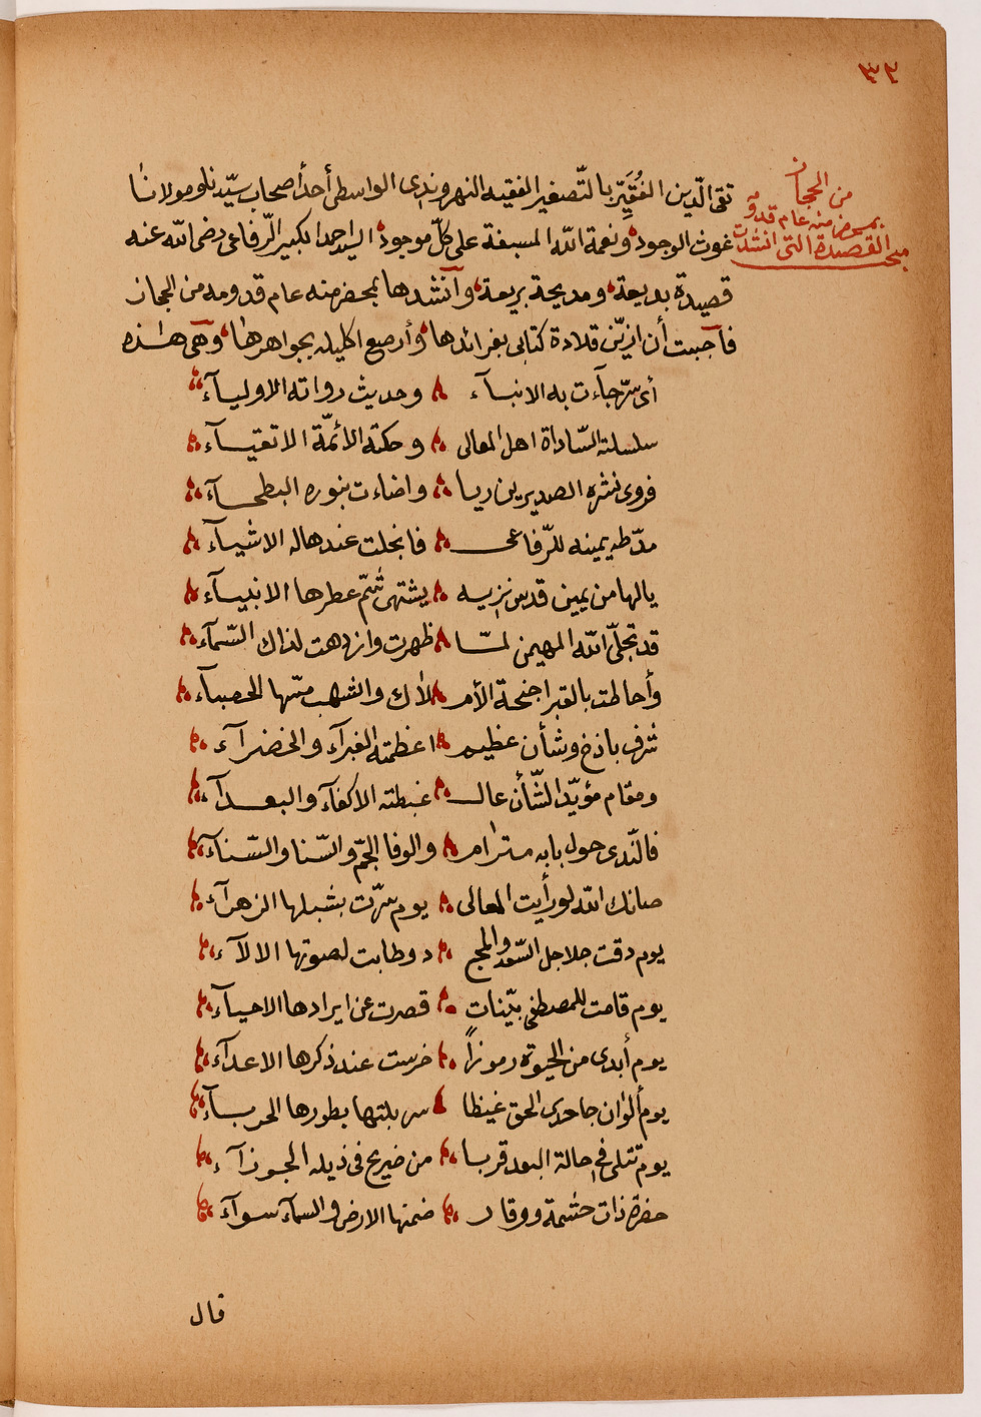 ٣٢
من الحجاز
بمحضر منه عام قدومه
مبحث القصيدة التى انشدت
تقى الدّين الفُقَيِّر بالتّصغير الفقيه النهروندى الواسطى أحد أصحاب سيّدنا ومولانا
غوث الوجود ونعمة الله المسبغة على كلّ موجود السيد احمد الكبير الرّفاعى رضى الله عنه
قصيدة بديعة ومديحة بريعة وآنشدها بمحضر منه عام قدومه من الحجاز
فآحببت أن ازيّن قلادة كتابى بفرائدها وأرصع اكليله بجواهرها وهى هٰذه
أى سرّ جآءت به الانبآء وحديث رواته الاوليآء
سلسلته السّاداة اهل المعالى وحكته الأئمّة الاتقيآء
فروى نشره الصديرين ريا واضاءت بنوره البطحآء
مدّ طه يمينه للرّفاعى فانجلت عندها له الاشيآء
يالها من يمين قدس نزيه يشتهى شمّ عطرها الانبيآء
قد تجلّى الله المهيمن لمّا ظهرت وازدهت لذاك السّمآء
وأحاطت بالقبر اجنحة الأملاك والشهب مسّها الحصبآء
شرف باذخ وشأن عظيم اعظمته الغبرآء والخضرآء
ومقام مؤيّد الشّأن عال غبطته الاكفآء والبعدآء
فالنّدى حول بابه مترام والوفا الجمّ والسّنا والسّنآء
صانك الله لو رأيت المعالى يوم سرّت بشبلها الزهرآء
يوم دقت جلاجل السّعد والمجد وطابت لصوتها الالآء
يوم قامت للمصطفى بيّنات قصرت عن ايرادها الاحيآء
يوم أبدى من الحيوة رموزاً خرست عند ذكرها الاعدآء
يوم ألوان جاحدى الحق غيظا سربلتها بطورها الحربآء
يوم تتلى فى حالة البعد قربا من ضريح فى ذيله الجوزآء
حضرة ذات حشمة ووقار ضمنها الارض والسمآء سوآء
قال